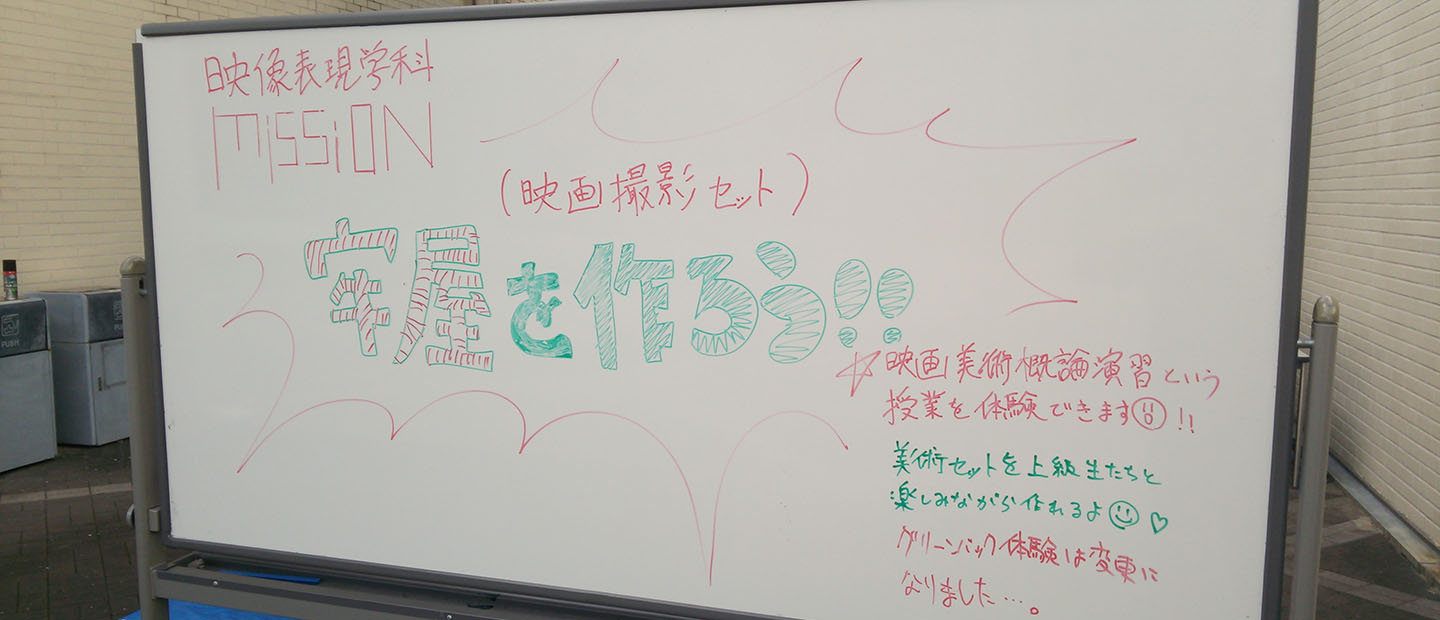 映像表現学科
MiSSiON
(映画撮影セット)
室屋を作ろう!!
☆映画美術概論演習という
授業を体験できます!!
美術セットを上級生たちと
楽しみながら作れるよ♡
グリーンバック体験は変更に
なりました…。
PUSH
PUSH